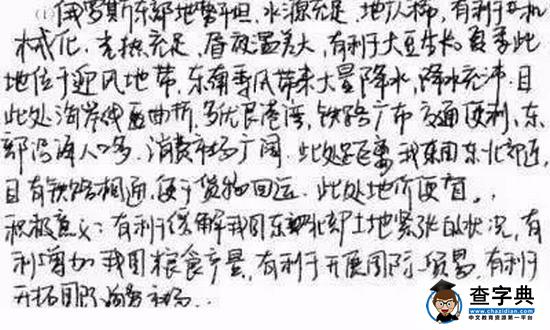 (1)俄罗斯东部地势平坦,水源充足,地广人稀,有利于机
械化,光热充足,昼夜温差大,有利于大豆生长.夏季此
地位于迎风地带,东南季风带来大量降水,降水充沛.且
此处海岸线曲折,多优良港湾,铁路广布交通便利,东
部沿海人口多,消费市场广阔.此处距离我国东北部近,
且有铁路相通,便于货物回运.此处地价便宜.
积极意义:有利于缓解我国东北部土地紧张的状况,有
利增加我国粮食产量,有利于开展国际贸易,有利于
开拓国际海外市场..
查字典
www.chazidian.com
中文教育资源第一平台